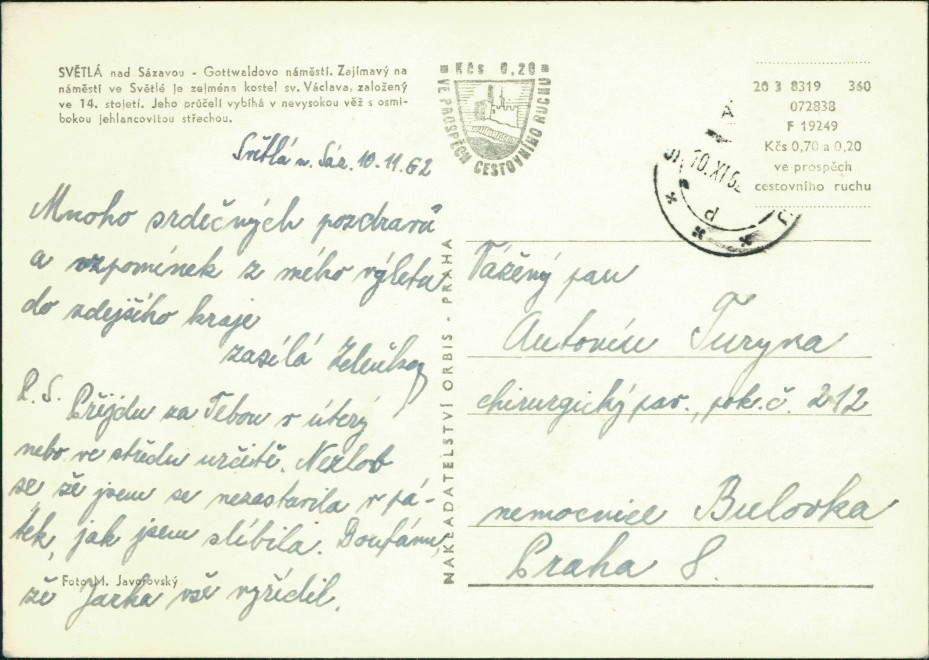 SVĚTLÁ nad Sázavou - Gottwaldovo náměstí. Zajímavý na
náměstí ve Světlé je zejména kostel sv. Václava, založený
ve 14. století. Jeho průčelí vybíhá v nevysokou věž s osmi-
bokou jehlancovitou střechou.
Kčs 0,20
VE PROSPĚCH CESTOVNÍHO RUCHU
20 3 8319 360
072838
F 19249
Kčs 0,70 a 0,20
ve prospěch
cestovního ruchu
10.XI.62
Světlá n. Sáz. 10.11.62
Mnoho srdečných pozdravů
a vzpomínek z mého výletu
do zdejšího kraje
zasílá
P.S. Přijdu za Tebou v úterý
nebo ve středu určitě. Nezlob
se že jsem se nezastavila v pá-
tek, jak jsem slíbila. Doufám,
že Jarka vše vyřídil.
Foto M. Javorovský
NAKLADATELSTVÍ ORBIS - PRAHA
Vážený pan
Antonín Turyna
chirurgický pav., pok. č. 212
nemocnice Bulovka
Praha 8.